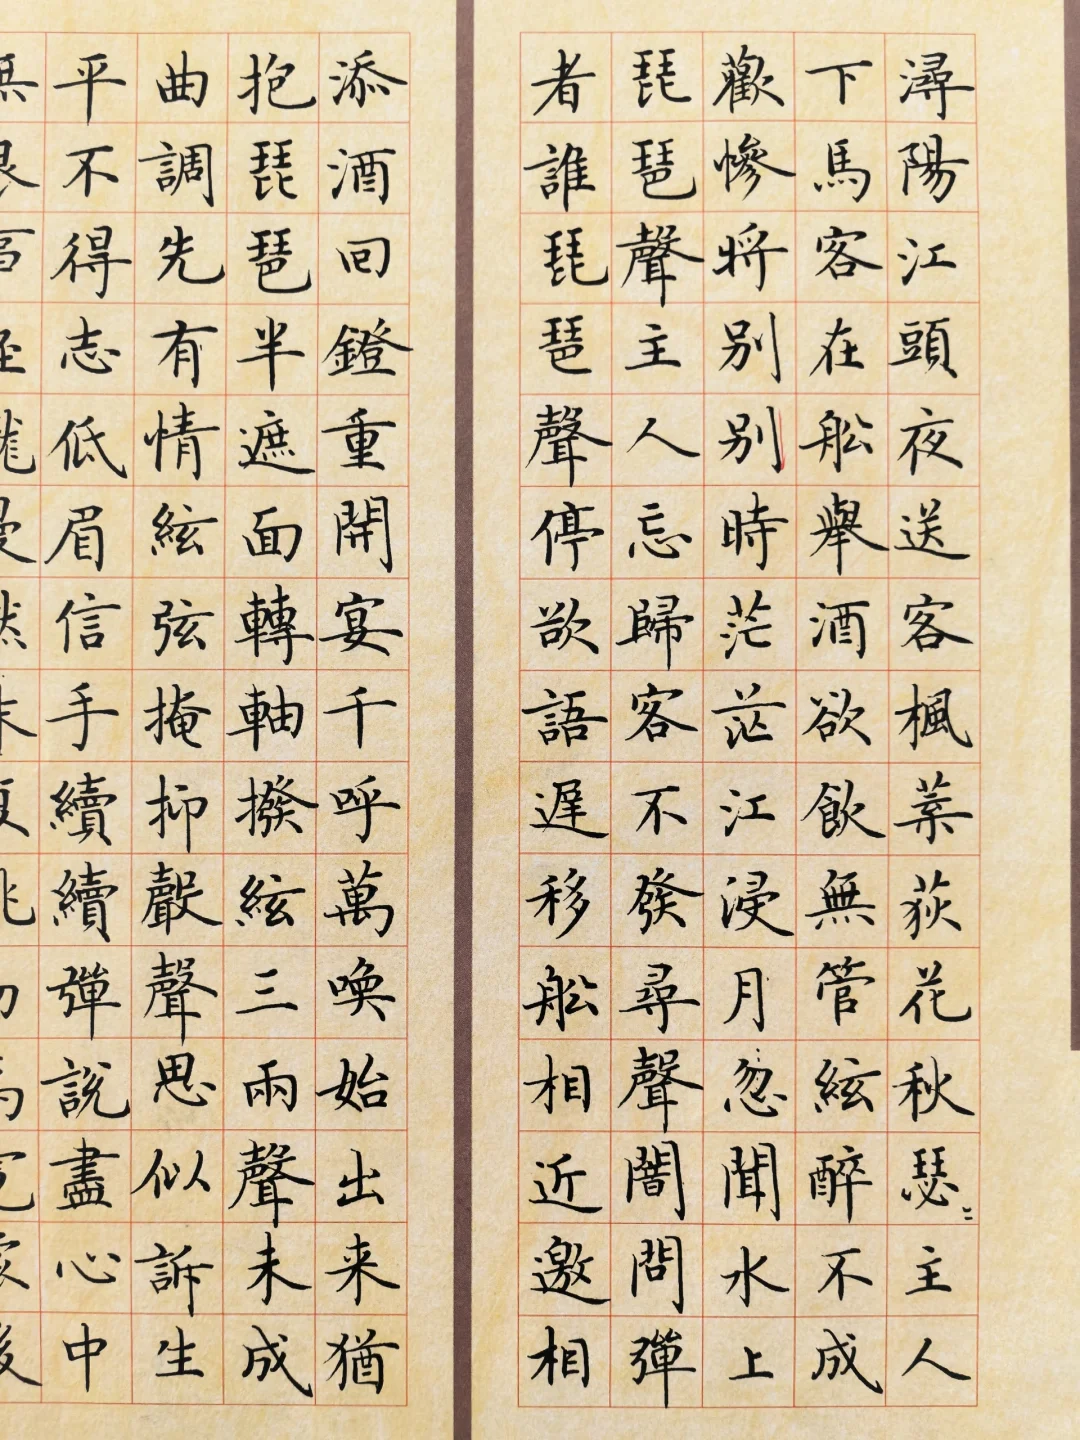 潯陽江頭夜送客楓葉荻花秋瑟〻主人
下馬客在舩舉酒欲飲無管絃醉不成
歡慘將别别時茫茫江浸月忽聞水上
琵琶聲主人忘歸客不發尋聲闇問彈
者誰琵琶聲停欲語遲移舩相近邀相
添酒回鐙重開宴千呼萬喚始出来猶
抱琵琶半遮面轉軸撥絃三兩聲未成
曲調先有情絃弦掩抑聲聲思似訴生
平不得志低眉信手續續彈說盡心中